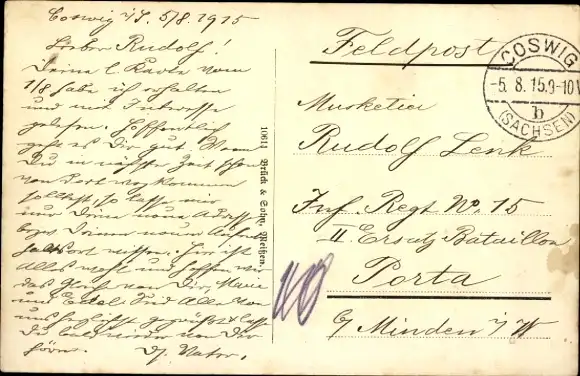 Coswig i/S. 5/8. 1915
Lieber Rudolf!
Deine l. Karte vom
1/8 habe ich erhalten
und mit Interesse
gelesen. Hoffentlich
geht es Dir gut. Wenn
Du in nächster Zeit schon
von dort wegkommen
solltest, so lasse mir
nur Deine neue Adresse
bezw. Deinen neuen
wissen. Hier ist
Alles wohl und hoffen wir
das Gleiche von Dir.
und Seid Alle von
uns herzlichst gegrüßt
Du bald wieder von Dir
hören. Dj. Vater.
10611 Brück & Sohn, Meißen.
Feldpost
COSWIG
-5. 8. 15. 9-10 V
b
(SACHSEN)
Musketier
Rudolf Lenk
Inf. Regt No. 15
II Ersatz Bataillon
Porta
b/ Minden i/W